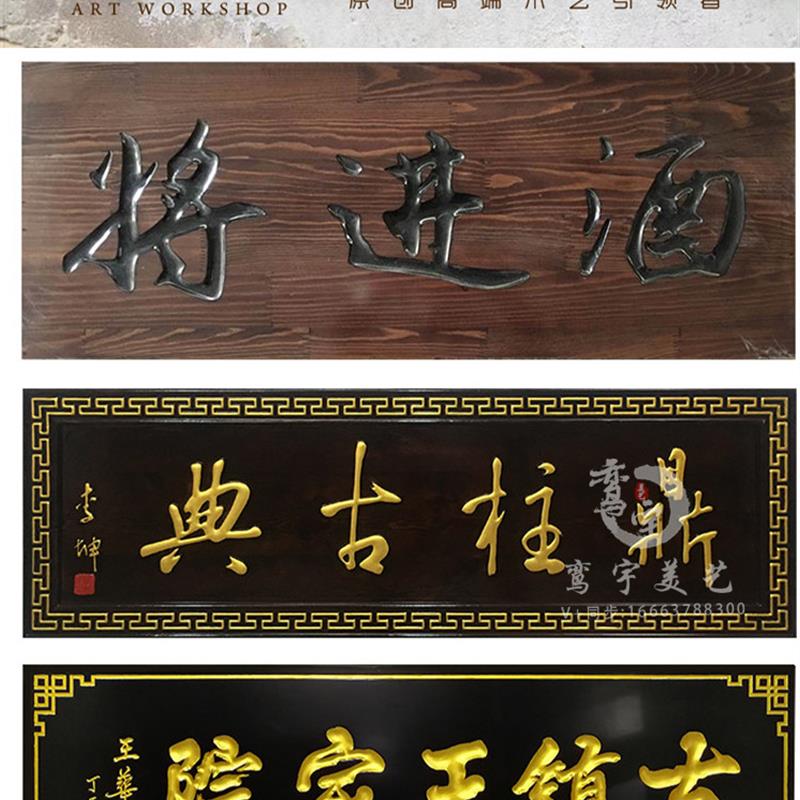 ART WORKSHOP
原创高端木艺引领者
将进酒
鼎柱古典
李坤
鸾宇
鸾宇美艺
V+同步:16663788300
古镇王家院
王華